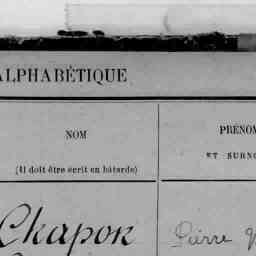 ALPHABÉTIQUE
NOM
(Il doit être écrit en bâtarde)
PRÉNOM
ET SURNO
Chapon
Pierre